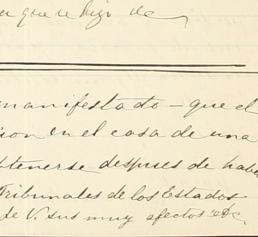 que se hizo de
manifestado - que el
en el caso de una
obtenerse despues de haber
Tribunales de los Estados
de V. sus muy afectos etc.